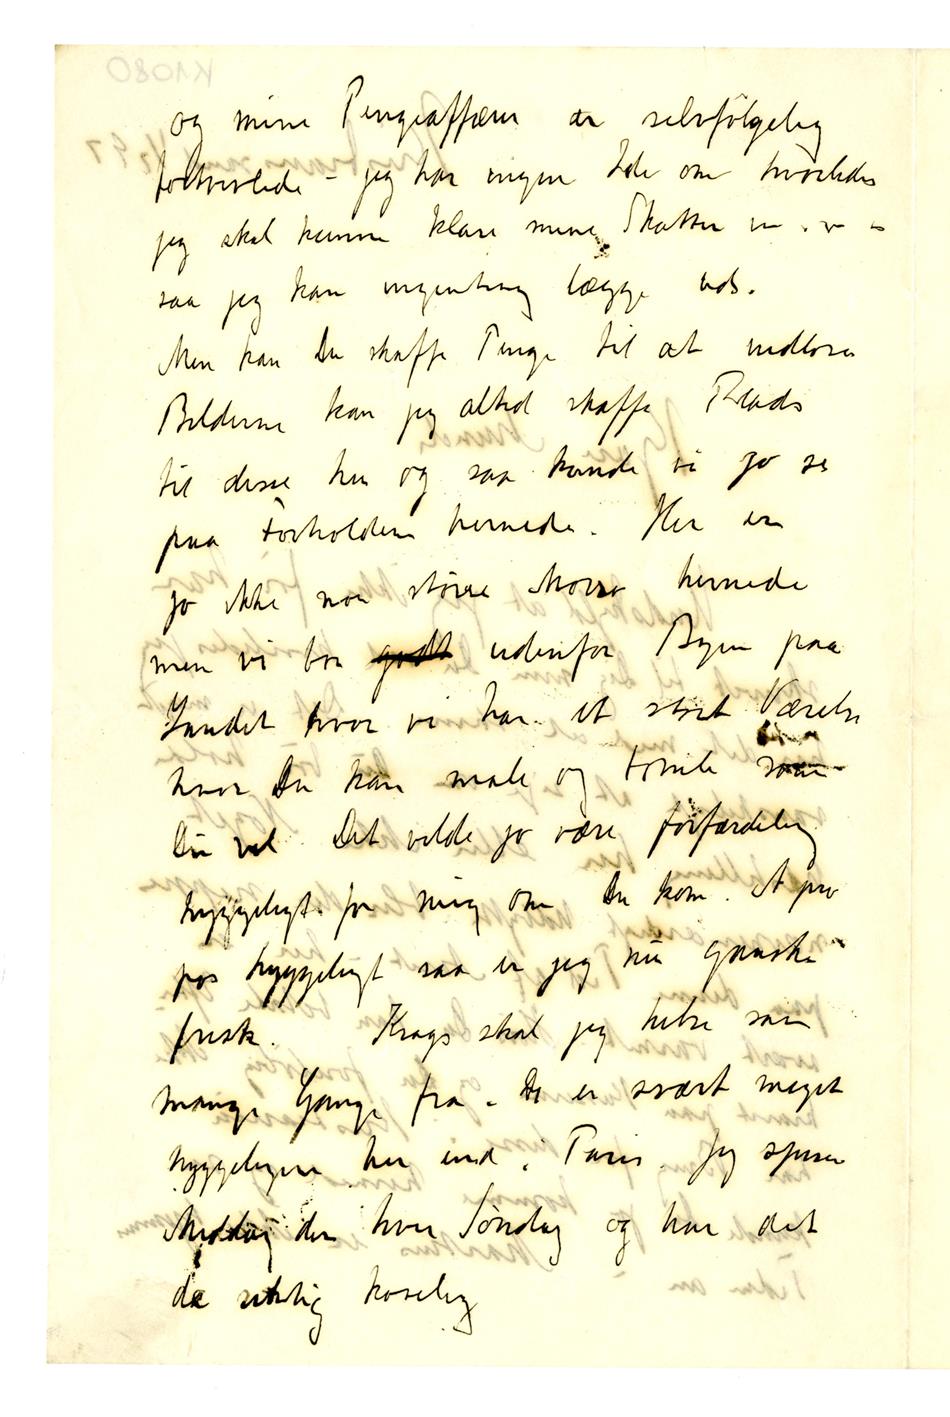 og mine Pengeaffærer er selvfølgelig
fortvivlede – jeg har ingen Ide om hvorledes
jeg skal kunne klare mine Skatter
saa jeg kan ingenting lægge ud.
Men kan Du skaffe Penge til at indløse
Billederne kan jeg altid skaffe Plads
til disse her og saa kunde vi jo se
paa Forholdene hernede. Her er
jo ikke noe større Moro hernede
men vi bor godt udenfor Byen paa
Landet hvor vi har et stort Værelse
hvor Du kan male og tumle som
Du vil Det vilde jo være forfærdelig
hyggeligt for mig om Du kom. A pro
pos hyggeligt saa er jeg nu ganske
frisk. Krogs skal jeg hilse saa
mange Gange fra. De er svært meget
hyggeligere her end i Paris. Jeg spiser
Middag der hver Søndag og har det
da koselig
K1080